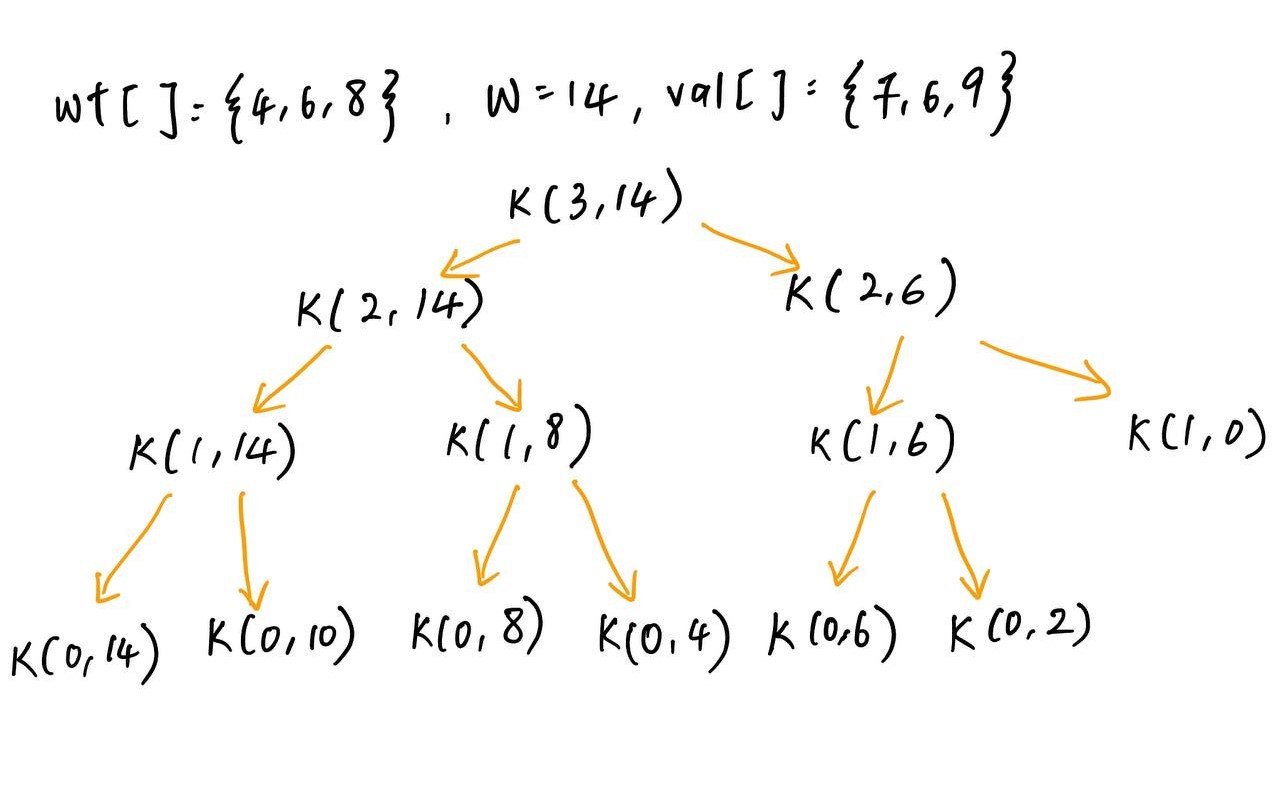 wt[]={4,6,8}, W=14, val[]={7,6,9}
K(3,14)
K(2,14) K(2,6)
K(1,14) K(1,8) K(1,6) K(1,0)
K(0,14) K(0,10) K(0,8) K(0,4) K(0,6) K(0,2)